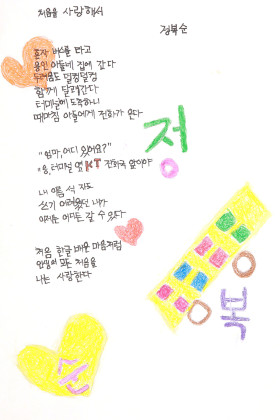 처음을 사랑해서
정복순
혼자 버스를 타고
용인 아들네 집에 갔다
두려움도 덜컹덜컹
함께 달려간다
터미널에 도착하니
때마침 아들에게 전화가 온다
"엄마, 어디 있어요?"
"응, 터미널 옆 KT 전화국 앞이야"
내 이름 석 자도
쓰기 어려웠던 내가
이제는 어디든 갈 수 있다
처음 한글 배운 마음처럼
인생의 모든 처음을
나는 사랑한다
정
복
순